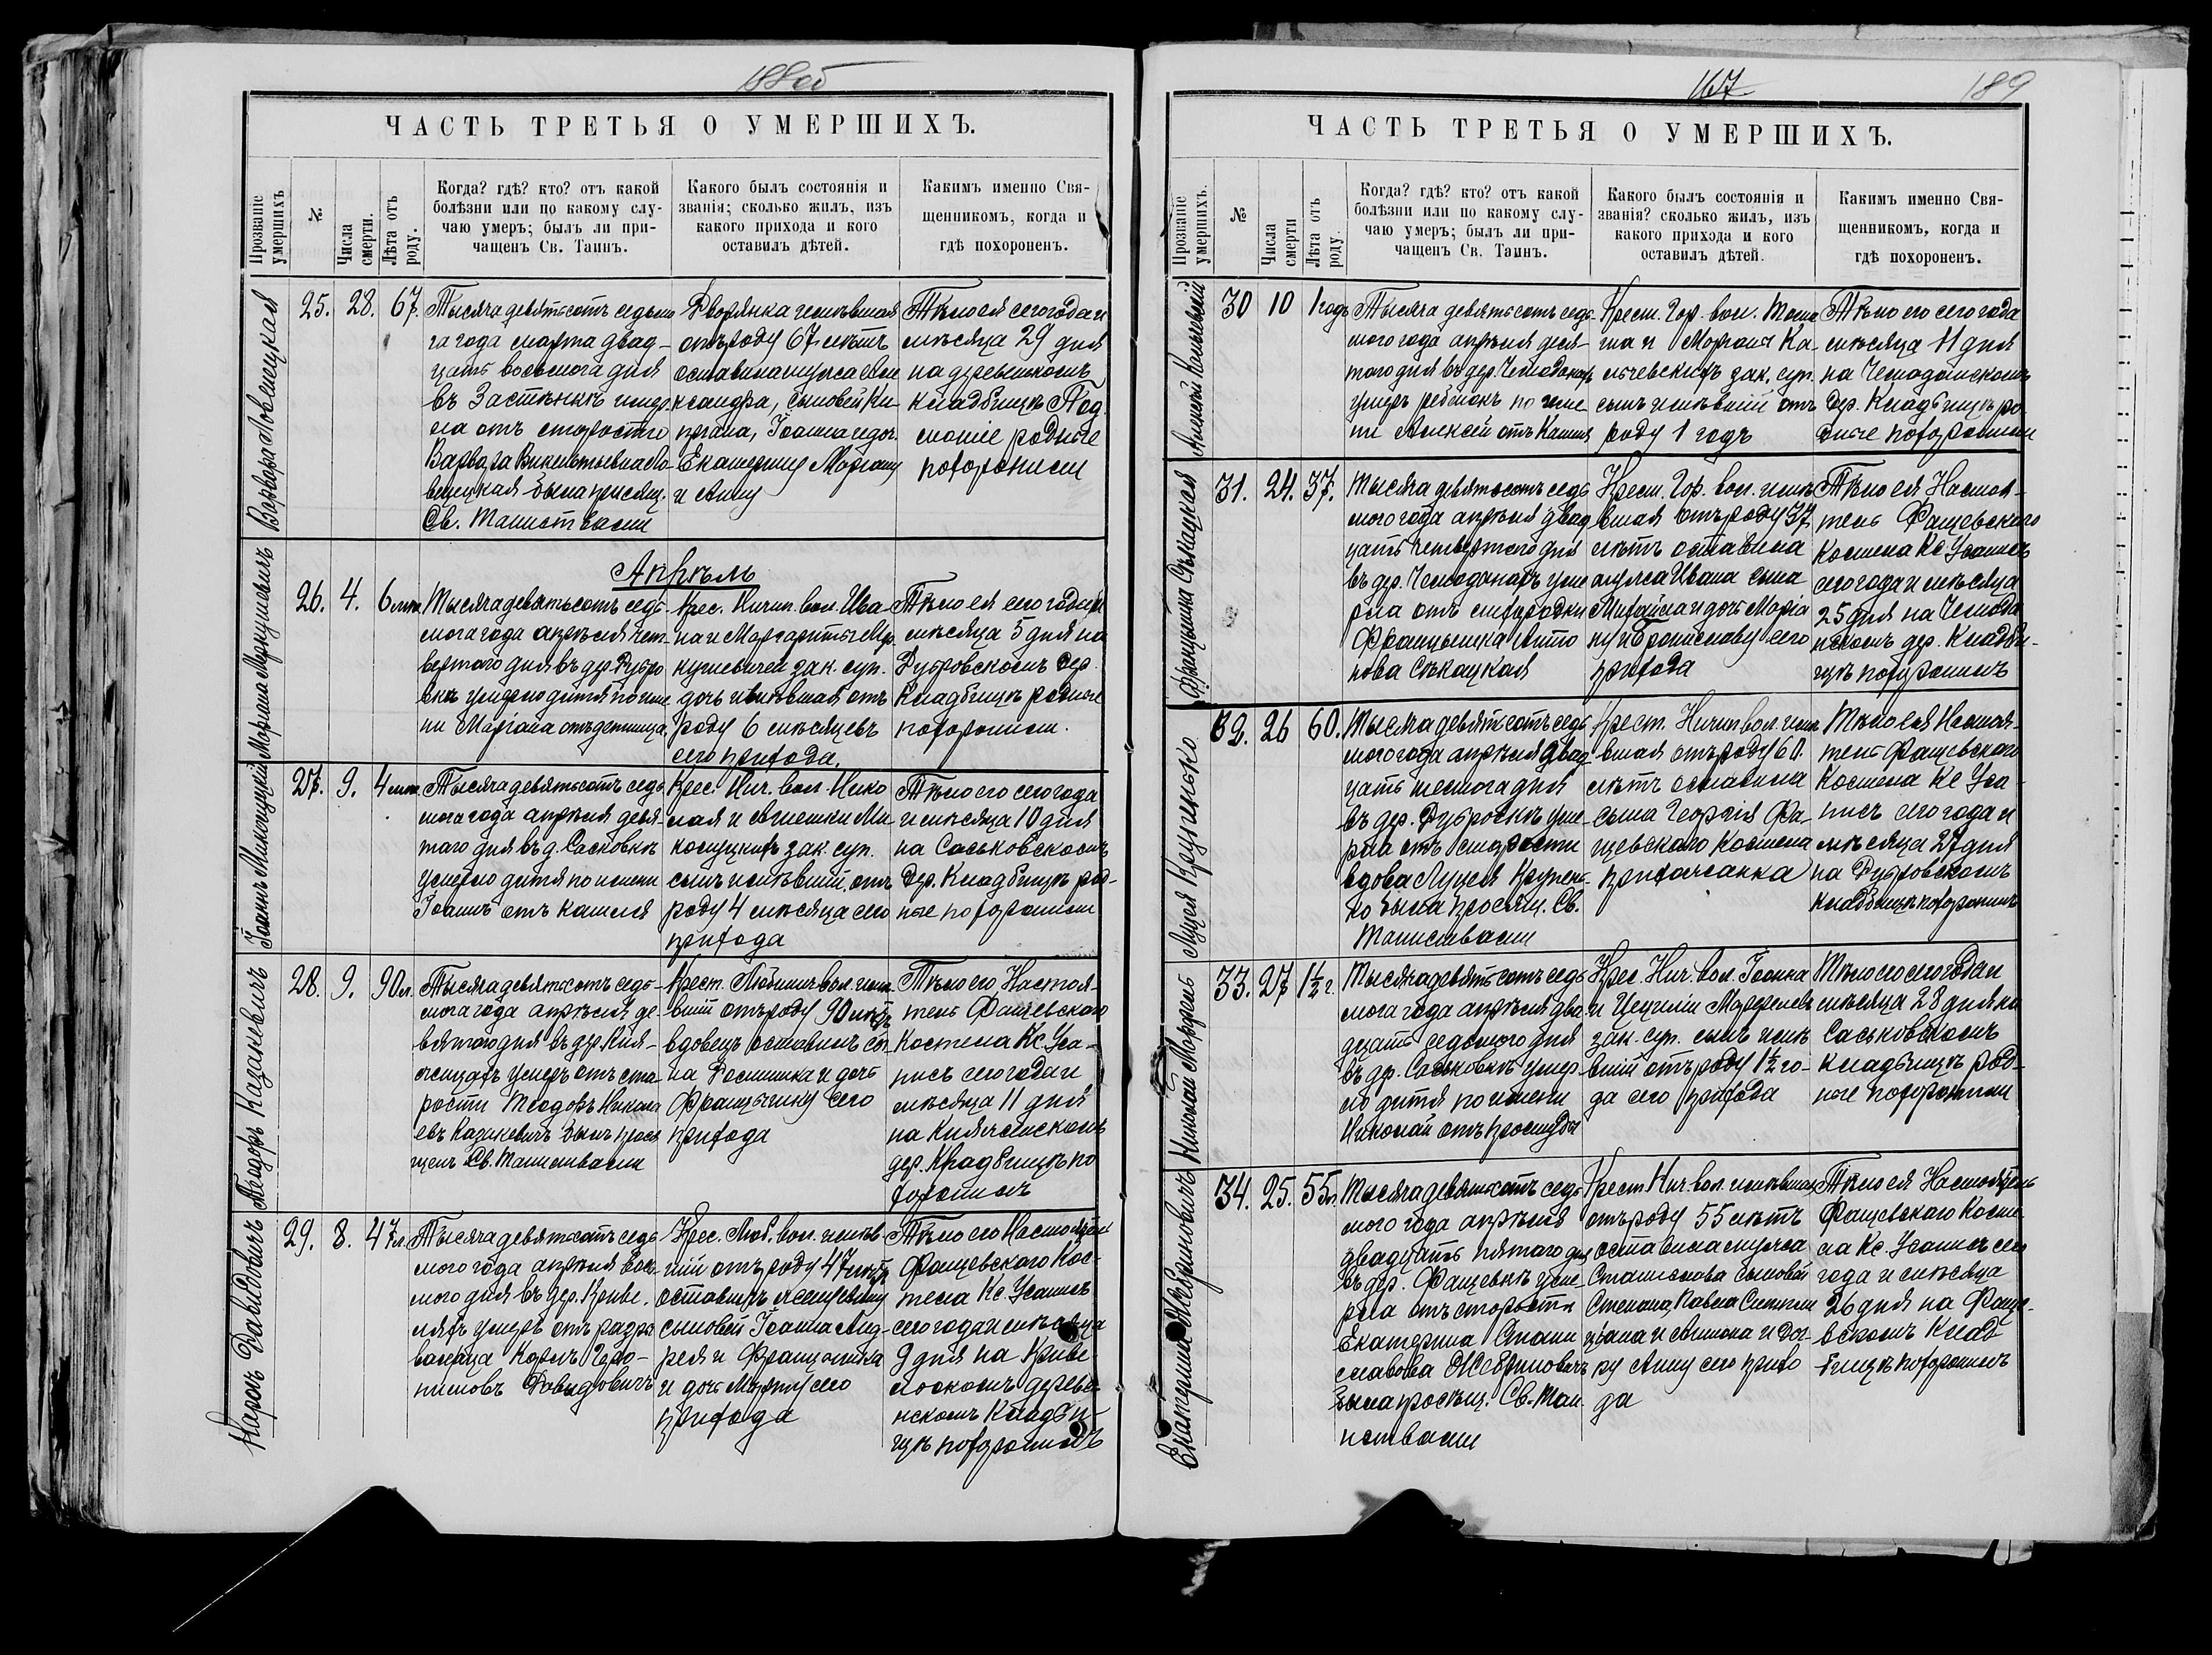 188об
ЧАСТЬ ТРЕТЬЯ О УМЕРШИХЪ.
Прозваніе умершихъ
№
Числа смерти.
Лѣта отъ роду.
Когда? гдѣ? кто? отъ какой
болѣзни или по какому слу-
чаю умеръ; былъ ли при-
чащенъ Св. Таинъ.
Какого былъ состоянія и
званія; сколько жилъ, изъ
какого прихода и кого
оставилъ дѣтей.
Каким​ъ именно Свя-
щенникомъ, когда и
гдѣ похороненъ.
Варвара Ловенецкая
25. 28. 67.
Тысяча девятьсотъ седьмо
га года марта двад-
цать восьмога дня
въ Застѣнкѣ умер
ла отъ старости
Варвара
вецкая была присящ.
Св. Таинствами
Дворянка имѣвшая
отъ роду 67 лѣтъ
оставила мужа Але
ксандра, сыновей Ки-
пріана, Іоанна и доч.
Екатерину Маріану
и Анну
Тѣло ея сего года и
мѣсяца 29 дня
на деревенскомъ
кладбищѣ Под
родные
похоронили
Апрѣль
Маріана Маркушевичъ
26. 4. 6 мѣс.
Тысяча девятьсотъ седь-
мога года апрѣля чет-
вертаго дня въ дер. Дубро
вкѣ умерло дитя по име
ни Маріана отъ
Крес. Ничип. вол. Ива
на и Маргариты Мар
кушевичей зак. суп.
дочь имѣвшая отъ
роду 6 мѣсяцевъ
сего прихода.
Тѣло ея сего года и
мѣсяца 5 дня на
Дубровскомъ дер.
Кладбищѣ родные
похоронили.
Іоаннъ Микоцукій
27. 9. 4 мѣс.
Тысяча девятьсотъ седь
мога года апрѣля девя-
таго дня въ д. Сасковкѣ
умерло дитя по имени
Іоаннъ отъ кашля
Крес. Нич. вол. Нико
лая и Агнешки Ми-
коцукихъ зак. суп.
сынъ имѣвшій отъ
роду 4 мѣсяца сего
прихода
Тѣло его сего года
и мѣсяца 10 дня
на Саськовскомъ
дер. Кладбищѣ род-
ные похоронили
Теодоръ Казакевичъ
28. 9. 90 л.
Тысяча девятьсотъ седь-
мога года апрѣля де
вятаго дня въ дер. Кня-
жицахъ умеръ отъ ста
рости Теодоръ Никола
евъ Казакевичъ былъ прися
щенъ Св. Таинствами
Крест. Любонич. вол. имѣ
вшій отъ роду 90 лѣтъ
вдовецъ оставилъ сы
на Доминика и дочь
Францишку сего
прихода
Тѣло его Настоя-
тель Фащевского
Костела Кс. Уса-
писъ сего года и
мѣсяца 11 дня
на Княжискомъ
дер. Кладбищѣ по
хоронилъ
Карлъ Давидовичъ
29. 8. 47 л.
Тысяча девятьсотъ седь
мого года апрѣля вось-
мого дня въ дер. Криве.
ляхъ умеръ отъ разры
ва сердца Карлъ
Давидовичъ
Крес. Люб. вол. имѣв
шій отъ роду 47 лѣтъ
оставилъ
сыновей Іоанна Анд-
рея и Францишка
и дочь Марту сего
прихода
Тѣло его Настоятель
Фащевского Кос-
тела Кс. Усаписъ
сего года и мѣсяца
9 дня на Криве-
лоскомъ деревен-
нскомъ Кладби-
щѣ похоронилъ
167
189
ЧАСТЬ ТРЕТЬЯ О УМЕРШИХЪ.
Прозваніе умершихъ.
№
Числа смерти
Лѣта отъ роду.
Когда? гдѣ? кто? отъ какой
болѣзни или по какому слу-
чаю умеръ; былъ ли при-
чащенъ Св. Таинъ.
Какого былъ состоянія и
званія? сколько жилъ, изъ
какого прихода и кого
оставилъ дѣтей.
Какимъ именно Свя-
щенникомъ, когда и
гдѣ похороненъ.
Алексѣй
30 10 1 годъ
Тысяча девятьсотъ седь-
мого года апрѣля деся-
того дня въ дер. Чемоданахъ
умеръ ребенокъ по име
ни Алексѣй отъ Кашля
Крест. Гор. вол. Тома
ша и Маріаны Ка-
льчевскихъ зак. суп.
сынъ имѣвшій отъ
роду 1 годъ
Тѣло его сего года
мѣсяца 11 дня
на Чемоданскомъ
дер. Кладбищѣ ро-
дные похоронили
Францишка Сѣкацкая
31. 24. 37.
Тысяча девятьсотъ седь
мого года апрѣля двад
цать четвертого дня
въ дер. Чемоданахъ уме
рла отъ лихорадки
Францишка Анто
нова Сѣкацкая
Крест. Гор. вол. имѣ
вшая отъ роду 37
лѣтъ оставила
мужа Ивана сына
Михаила и дочь Маріа
ну и Брониславу сего
прихода
Тѣло ея Настоя-
тель Фащевского
Костела Кс. Усаписъ
сего года и мѣсяца
25 дня на Чемода
нскомъ дер. Кладби-
щѣ похоронилъ
Луцея Крупенько
32. 26 60.
Тысяча девятьсотъ седь
мого года апрѣля двад
цать шестога дня
въ дер. Дубровкѣ уме-
рла отъ старости
вдова Луцея Крупень-
ко была присящ. Св.
Таинствами
Крест. Ничип. вол. имѣ
вшая отъ роду 60.
лѣтъ оставила
сына Георгія Фа-
щевского Костела
прихожанка
Тѣло ея Настоя-
тель Фащевского
Костела Кс Уса-
писъ сего года и
мѣсяца 27 дня
на Дубровскомъ
кладбищѣ похоронилъ
Николай
33. 27 1½ г.
Тысяча девятьсотъ седь
мога года апрѣля два
дцать седьмого дня
въ дер. Саськовкѣ умер-
ло дитя по имени
Николай отъ простуды
Крес. Нич. вол. Іоанна
и Цециліи
зак. суп. сынъ имѣ
вшій отъ роду 1½ го-
да сего прихода
Тѣло его сего года и
мѣсяца 28 дня на
Саськовскомъ
кладбищѣ род-
ные похоронили
Екатерина Жебриновичъ
34. 25. 55 л.
Тысяча девятьсотъ седь
мого года апрѣля
двадцать пятаго дня
въ дер. Фащевкѣ уме
рла отъ старости
Екатерина Стани
славова Жебриновичъ
была просящ. Св. Таи
нствами
Крест. Нич. вол. имѣвшая
отъ роду 55 лѣтъ
оставила мужа
Станислава сыновей
Степана Павла
и Антона и доч-
ку Анну сего прихо
да
Тѣло ея Настоятель
Фащевского Косте-
ла Кс. Усаписъ сего
года и мѣсяца
26 дня на Фаще-
вскомъ Клад-
бищѣ похоронилъ